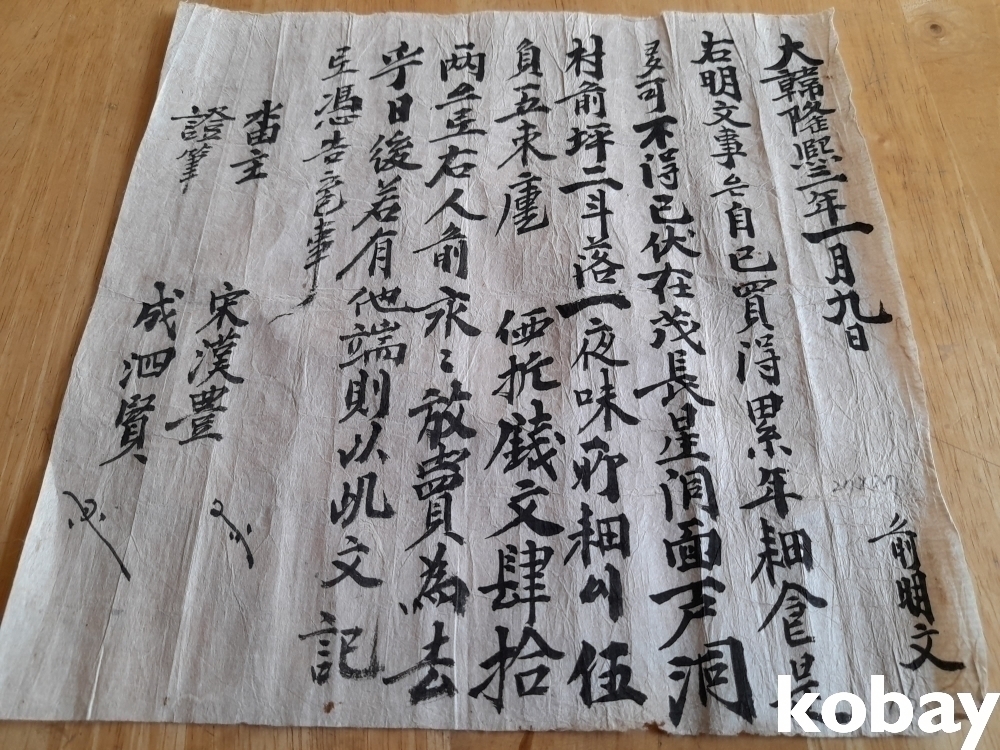 大韓隆熙三年一月九日 前明文
右明文事段自己買得累年耕食是
可不得已伏在茂長星洞面戸洞
村前坪二斗落一夜味所耕 伍
負五束廤 価折錢文肆拾
両 右人前永〻放賣為去
乎日後若有他端則以此文記
憑告官事
畓主 宋漢豊
證筆 成泗賢
kobay